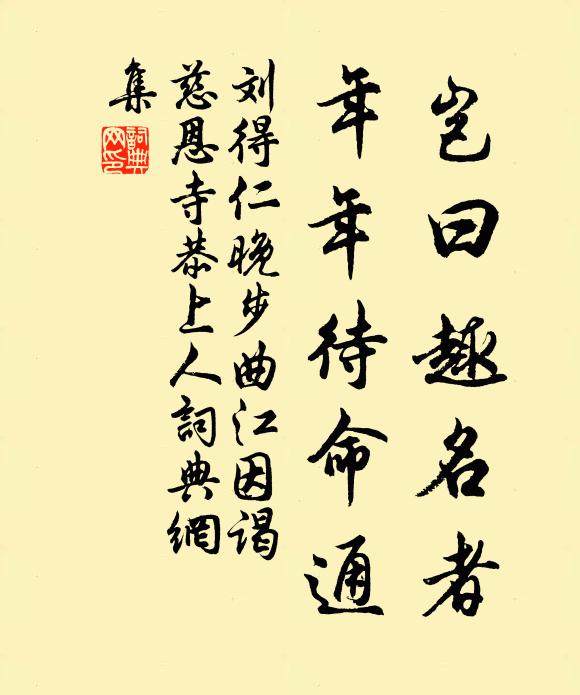 岂曰趣名者
年年待命通
刘得仁晚步曲江因谒
慈恩寺恭上人詞典網
集
詞典
网印